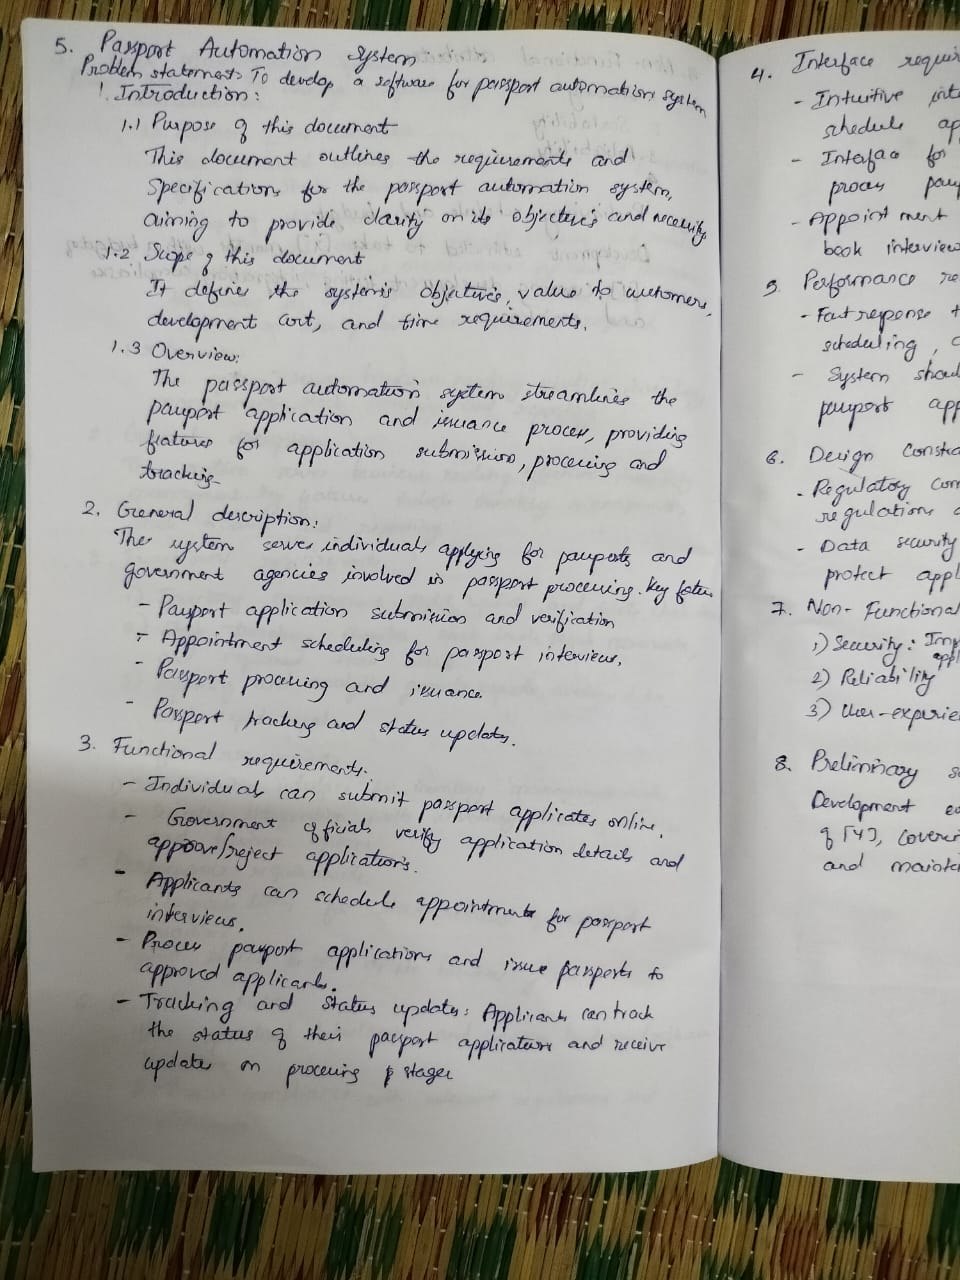 5. Passport Automation System
Problem statement: To develop a software for passport automation system
1. Introduction:
1.1 Purpose of this document
This document outlines the requirements and
Specifications for the passport automation system,
aiming to provide clarity on its objectives and necessity
1.2 Scope of this document
It defines the system's objectives, value to customers,
development cost, and time requirements.
1.3 Overview:
The passport automation system streamlines the
passport application and issuance process, providing
features for application submission, processing and
tracking
2. General description:
The system serves individuals applying for passports and
government agencies involved in passport processing. Key
- Passport application submission and verification
- Appointment scheduling for passport interviews.
- Passport processing and issuance
- Passport tracking and status updates.
3. Functional requirements.
- Individuals can submit passport applicates online.
- Government officials verify application details and
approve/reject applications.
- Applicants can schedule appointments for passport
interviews.
- Process passport applications and issue passports to
approved applicants.
- Tracking and status updates: Applicants can track
the status of their passport applications and receive
updates on processing stages
4. Interface requir
- Intuitive inte
schedule ap
- Interface for
process pass
- Appointment
book interview
5. Performance re
- Fast reponse t
scheduling,
- System shoul
passport app
6. Design Constra
- Regulatory com
regulations
- Data security
protect appl
7. Non-Functional
1) Security: Imp
appl
2) Reliability
3) User-experie
8. Preliminary s
Development
of [Y], coveri
and mainte